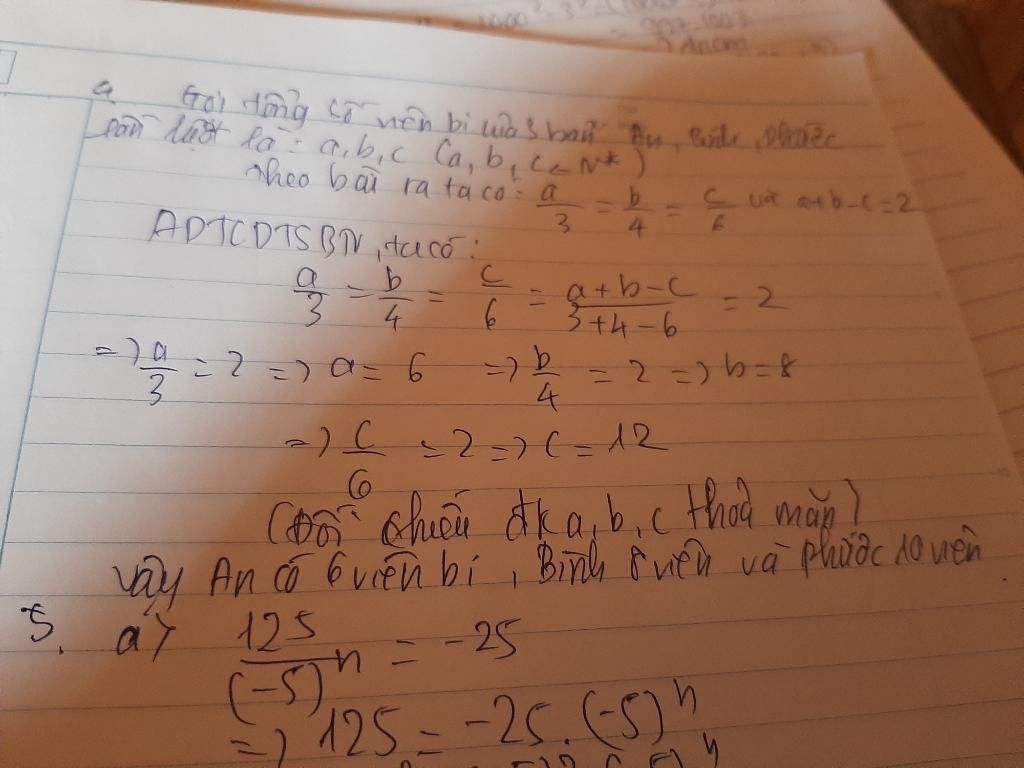 4. Gọi tổng số viên bi của 3 bạn An, Bình, Phước
lần lượt là: a, b, c (a, b, c ∈ N*)
theo bài ra ta có: a/3 = b/4 = c/6 và a+b-c=2
ADTCDTSBN, ta có:
a/3 = b/4 = c/6 = (a+b-c)/(3+4-6) = 2
=> a/3 = 2 => a = 6 => b/4 = 2 => b = 8
=> c/6 = 2 => c = 12
(Đối chiếu đk a, b, c thoả mãn)
Vậy An có 6 viên bi, Bình 8 viên và phước 10 viên.
5. a) 125/(-5)^n = -25
=> 125 = -25.(-5)^n